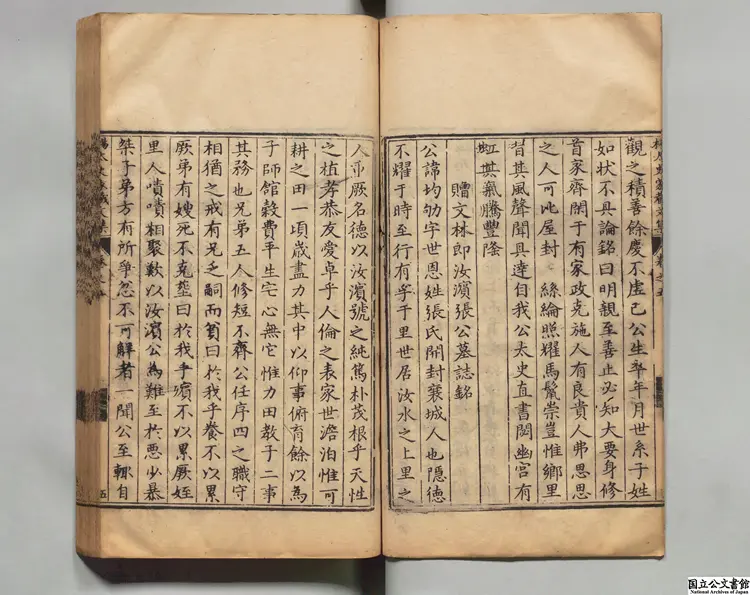 觀之積善餘慶不虛已公生卒年月世系子姓
如狀不具論銘曰明親至善止必知大要身修
首家齊閑于有家政克施人有良貴人弗思思
之人可比屋封絲綸照耀馬鬣崇豈惟鄉里
昔其風聲聞具達自我公太史直書閟幽宮有
虹其氣騰豐隆
贈文林郎汝濱張公墓誌銘
公諱均劬字世恩姓張氏開封襄城人也隱德
不耀于時至行有孚千里世居汝水之上里之
人重厥名德以汝濱號之純篤朴茂根乎天性
之植孝恭友愛卓乎人倫之表家世澹泊惟可
耕之田一頃歲盡力其中以仰事俯育餘以為
子師館穀費平生宅心無它惟力田教子二事
其務也兄弟五人修短不齊公任序四之職守
相猶之戒有兄乏嗣而貧曰於我乎養不以累
厥弟有嫂死不克塟曰於我乎殯不以累厥姪
里人嘖嘖相聚歎以汝濱公為難至於悪少暴
桀子弟方有所爭忽不可解者一聞公至輒自
五
国立公文書館
National Archives of Japan